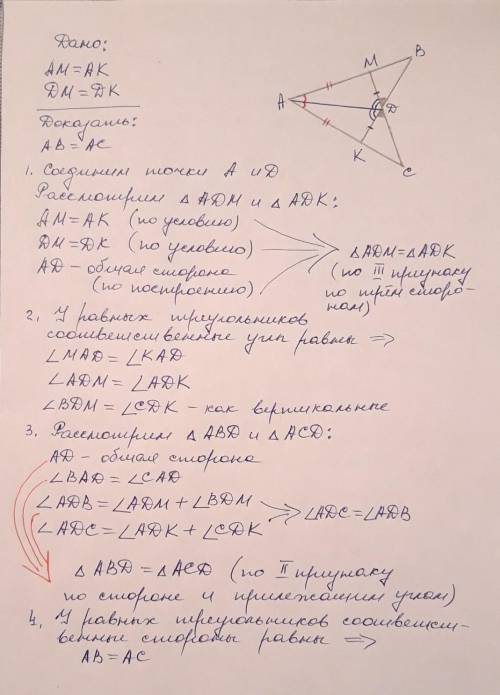 Дано:
AM = AK
DM = DK
Доказать:
AB = AC
M
B
A
D
K
C
1. Соединим точки A и D
Рассмотрим △ADM и △ADK:
AM = AK (по условию)
DM = DK (по условию)
AD – общая сторона
(по построению)
△ADM = △ADK
(по III признаку
по трём сторо-
нам)
2. У равных треугольников
соответственные углы равны ⇒
∠MAD = ∠KAD
∠ADM = ∠ADK
∠BDM = ∠CDK – как вертикальные
3. Рассмотрим △ABD и △ACD:
AD – общая сторона
∠BAD = ∠CAD
∠ADB = ∠ADM + ∠BDM
∠ADC = ∠ADK + ∠CDK
∠ADC = ∠ADB
△ABD = △ACD (по II признаку
по стороне и прилежащим углам)
4. У равных треугольников соответст-
венные стороны равны ⇒
AB = AC